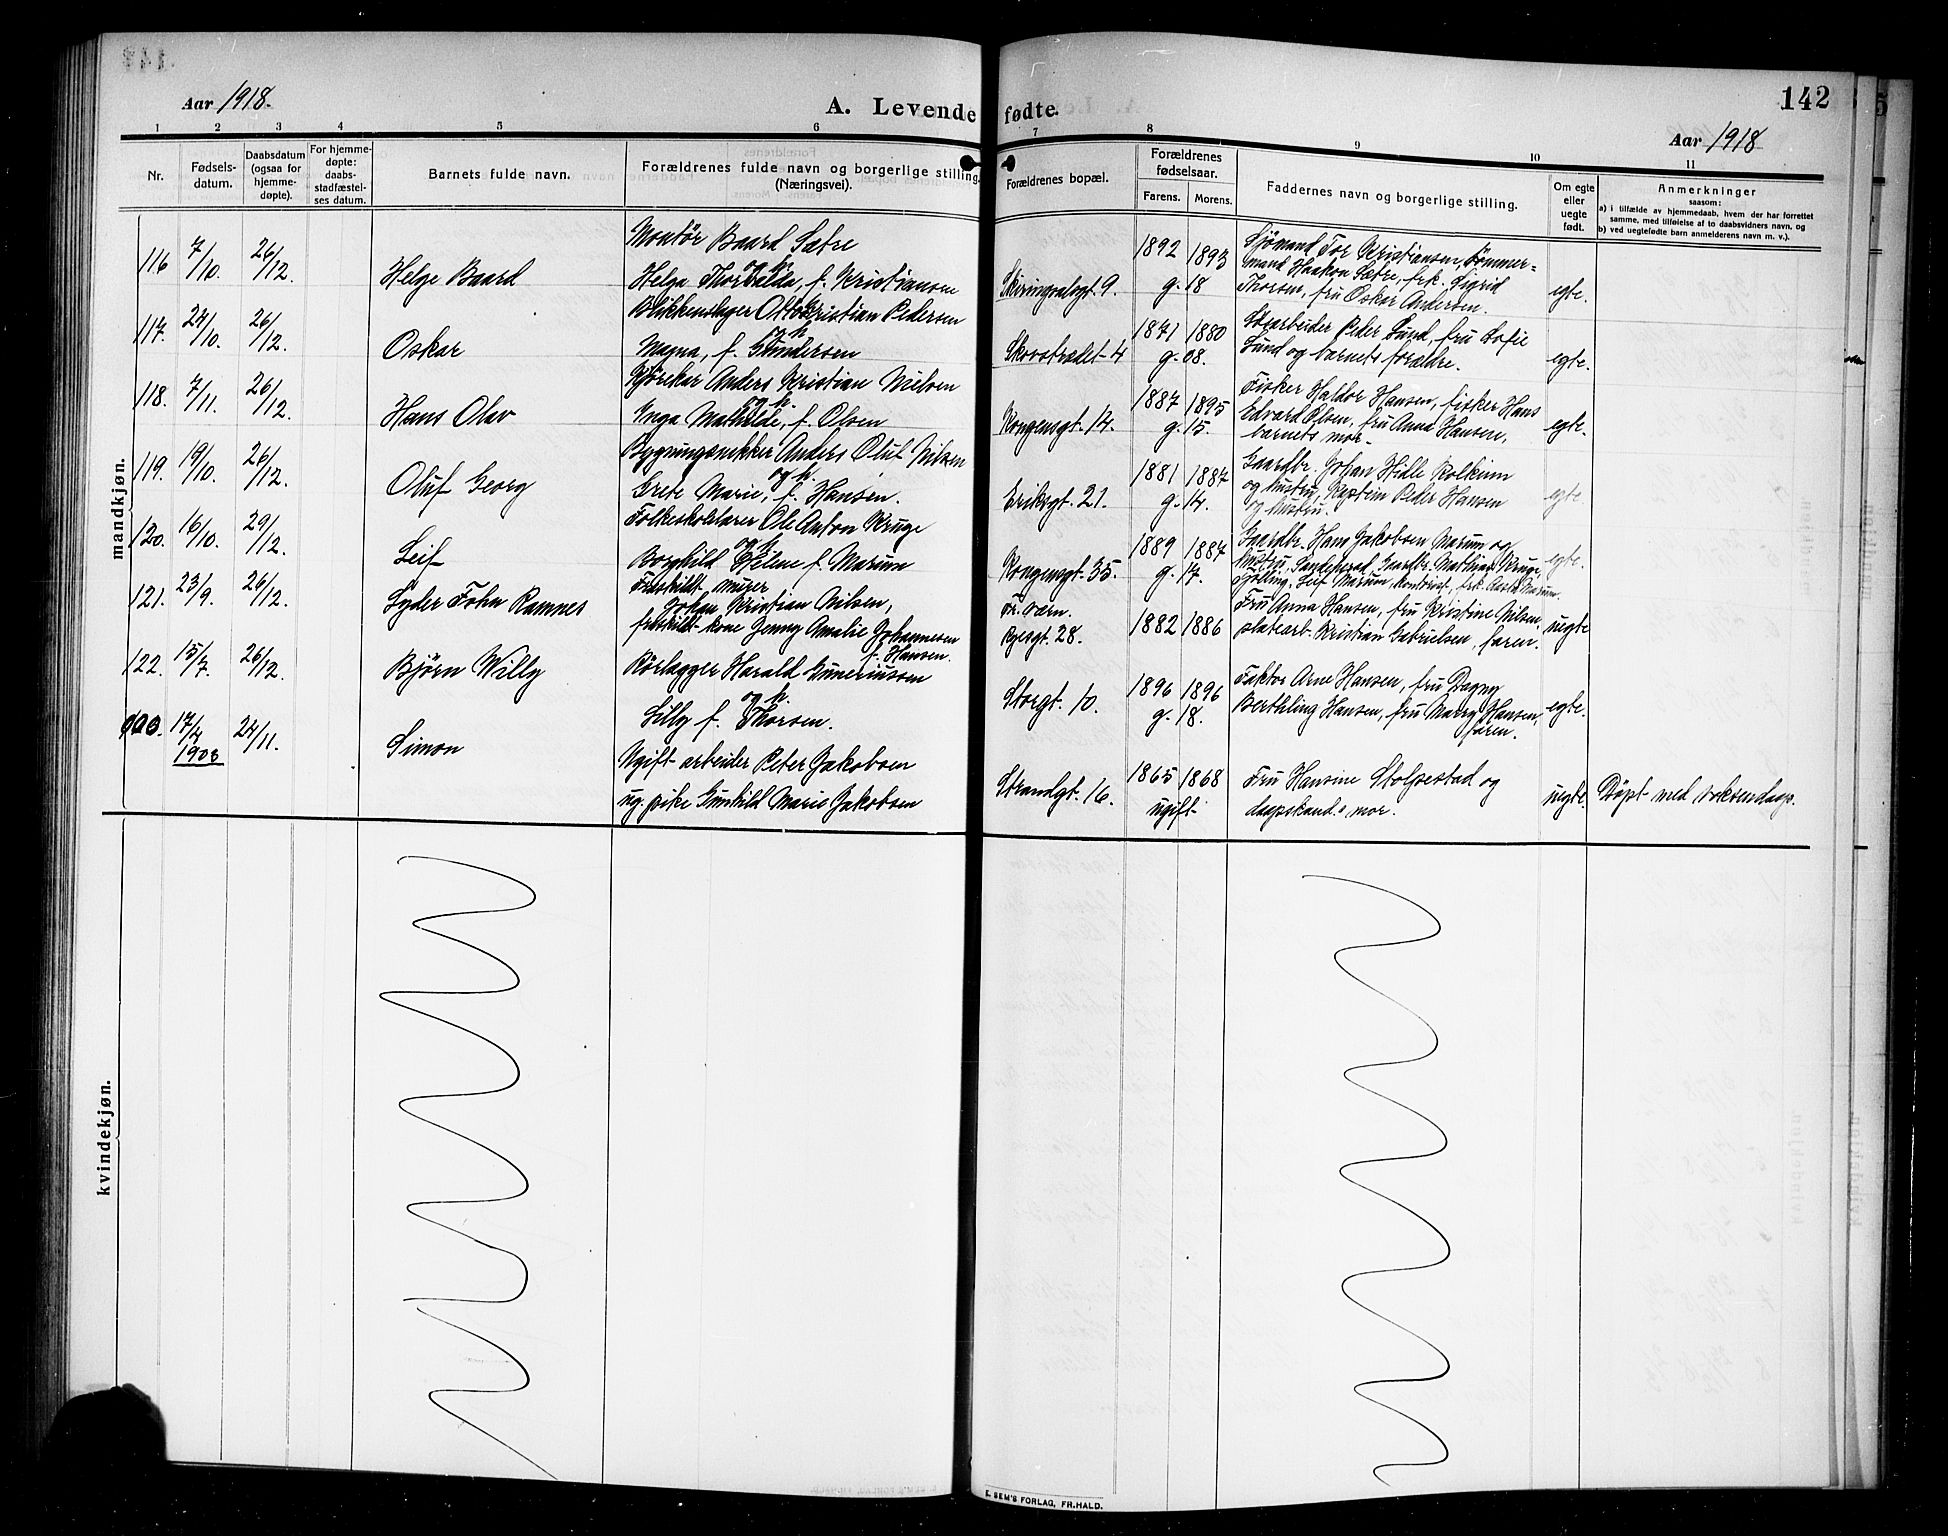 Aar 1918.
A. Levende fødte.
142
Aar 1918
1 2 3 4 5 6 7 8 9 10 11
Nr.
Fødsels-
datum.
Daabsdatum
(ogsaa for
hjemme-
døpte).
For hjemme-
døpte:
daabs-
stadfæstel-
ses datum.
Barnets fulde navn.
Forældrenes fulde navn og borgerlige stilling.
(Næringsvei).
Forældrenes bopæl.
Forældrenes
fødselsaar.
Farens. Morens.
Faddernes navn og borgerlige stilling.
Om egte
eller
uegte
født.
Anmerkninger
saasom:
a) i tilfælde av hjemmedaab, hvem der har forrettet
samme, med tilføielse af to daabsvidners navn, og
b) ved uegtefødte barn anmelderens navn m. v.).
mandkjøn.
116 7/10. 26/12. Helge Baard
Montør Baard Sætre
og h.
Helga Thorvalda, f. Kristiansen
Skiringsalsgt. 9.
1892 1893
g. 18
Sjømand Tor Kristiansen, tømmer-
mand Haakon Sætre, frk. Sigrid
Thorsen, fru Oskar Andersen.
egte.
117. 24/10. 26/12. Oskar
Blikkenslager Otto Kristian Pedersen
og h.
Magna, f. Gundersen
Skovstrædet 4
1871 1880
g. 08.
Peder Lund, fru Sofie
Lund og barnets forældre.
egte.
118. 7/11. 26/12. Hans Olav
Kjørekar Anders Kristian Nielsen
og h.
Inga Mathilde, f. Olsen
Kongensgt. 14.
1887 1895
g. 15.
Fisker Haldor Hansen, fisker Hans
Edvard Olsen, fru Anna Hansen,
barnets mor.
egte.
119. 19/10. 26/12. Oluf Georg
Bygningssnekker Anders Oluf Nilsen
og h.
Grete Marie, f. Hansen.
Eriksgt. 21.
1881 1887
g. 14.
Gaardbr. Johan Hille
og hustru, Kaptein Peder Hansen
og hustru.
egte
120. 16/10. 29/12. Leif
Folkeskolelærer Ole Anton Kruge
og h.
Borghild Helene f. Marum
Kongensgt. 35.
1889 1887
g. 17.
Gaardbr. Hans Jakobsen Marum og
hustru, Sandeherad, Gaardbr. Mathias Kruge
Leif Marum, kontorist, frk. Aasta Marum.
egte.
121. 23/9. 26/12. Lyder John Ramnes
Fraskilt murer
Johan Kristian Nilsen,
fraskilt kone Jenny Amalie Johannesen
f. Hansen.
Fr. værn.
Bjersgt. 28.
1882 1886
Fru Anna Hansen, fru Kristine Nilsen,
platearb. Kristian Gabrielsen, faren.
uegte
122. 15/7. 26/12. Bjørn Willy
Rørlægger Harald Gunerinssen
og h.
Lilly f. Thorsen.
Storgt. 10.
1896 1896
g. 18.
Faktor Arne Hansen, fru Dagny
Berthling Hansen, fru Marry Hansen,
faren.
egte.
17/4
1903
24/11. Simon
Ugift arbeider Peter Jakobsen
ug. pike Gunhild Marie Jakobsen
Strandgt. 16.
1865 1868
ugift
Fru Hansine Stolpestad og
daapskand.s mor.
uegte.
Døpt med voksendaap.
kvindekjøn.
E. SEM'S FORLAG, FR.HALD.